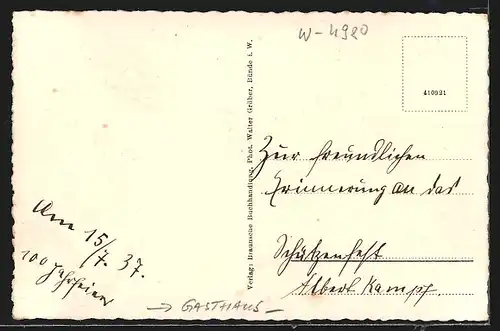 W-4920
410921
Verlag: Braunsche Buchhandlung, Phot. Walter Gröber, Bünde i. W.
Zur freundlichen
Erinnerung an das
Schützenfest
Albert Kampf.
Am 15/7. 37.
100 Jahrfeier
→ GASTHAUS –